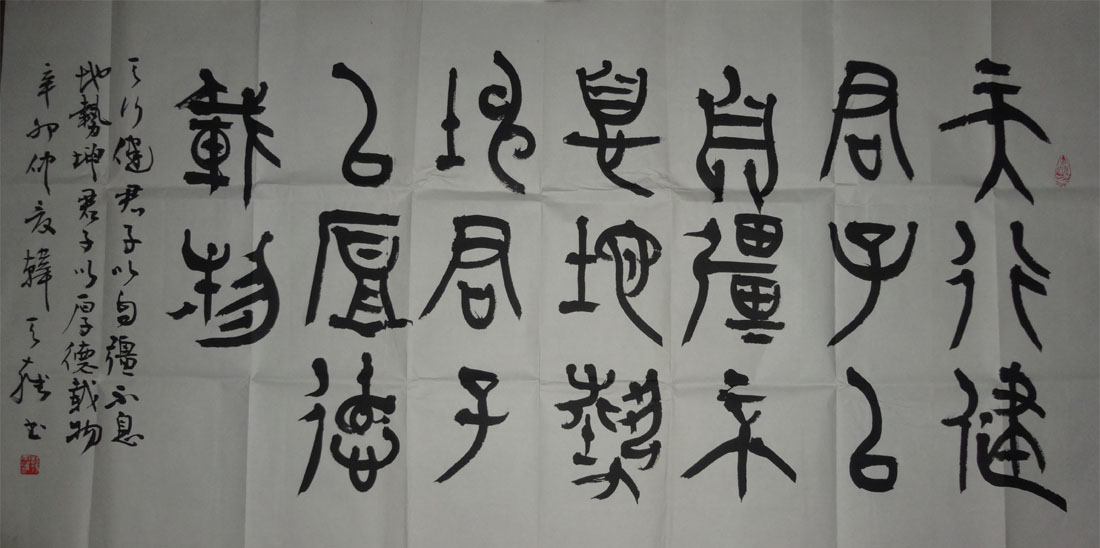 天行健
君子以
自彊不
息地勢
坤君子
以厚德
載物
天行健君子以自彊不息
地勢坤君子以厚德載物
辛卯仲夏韓天雍书